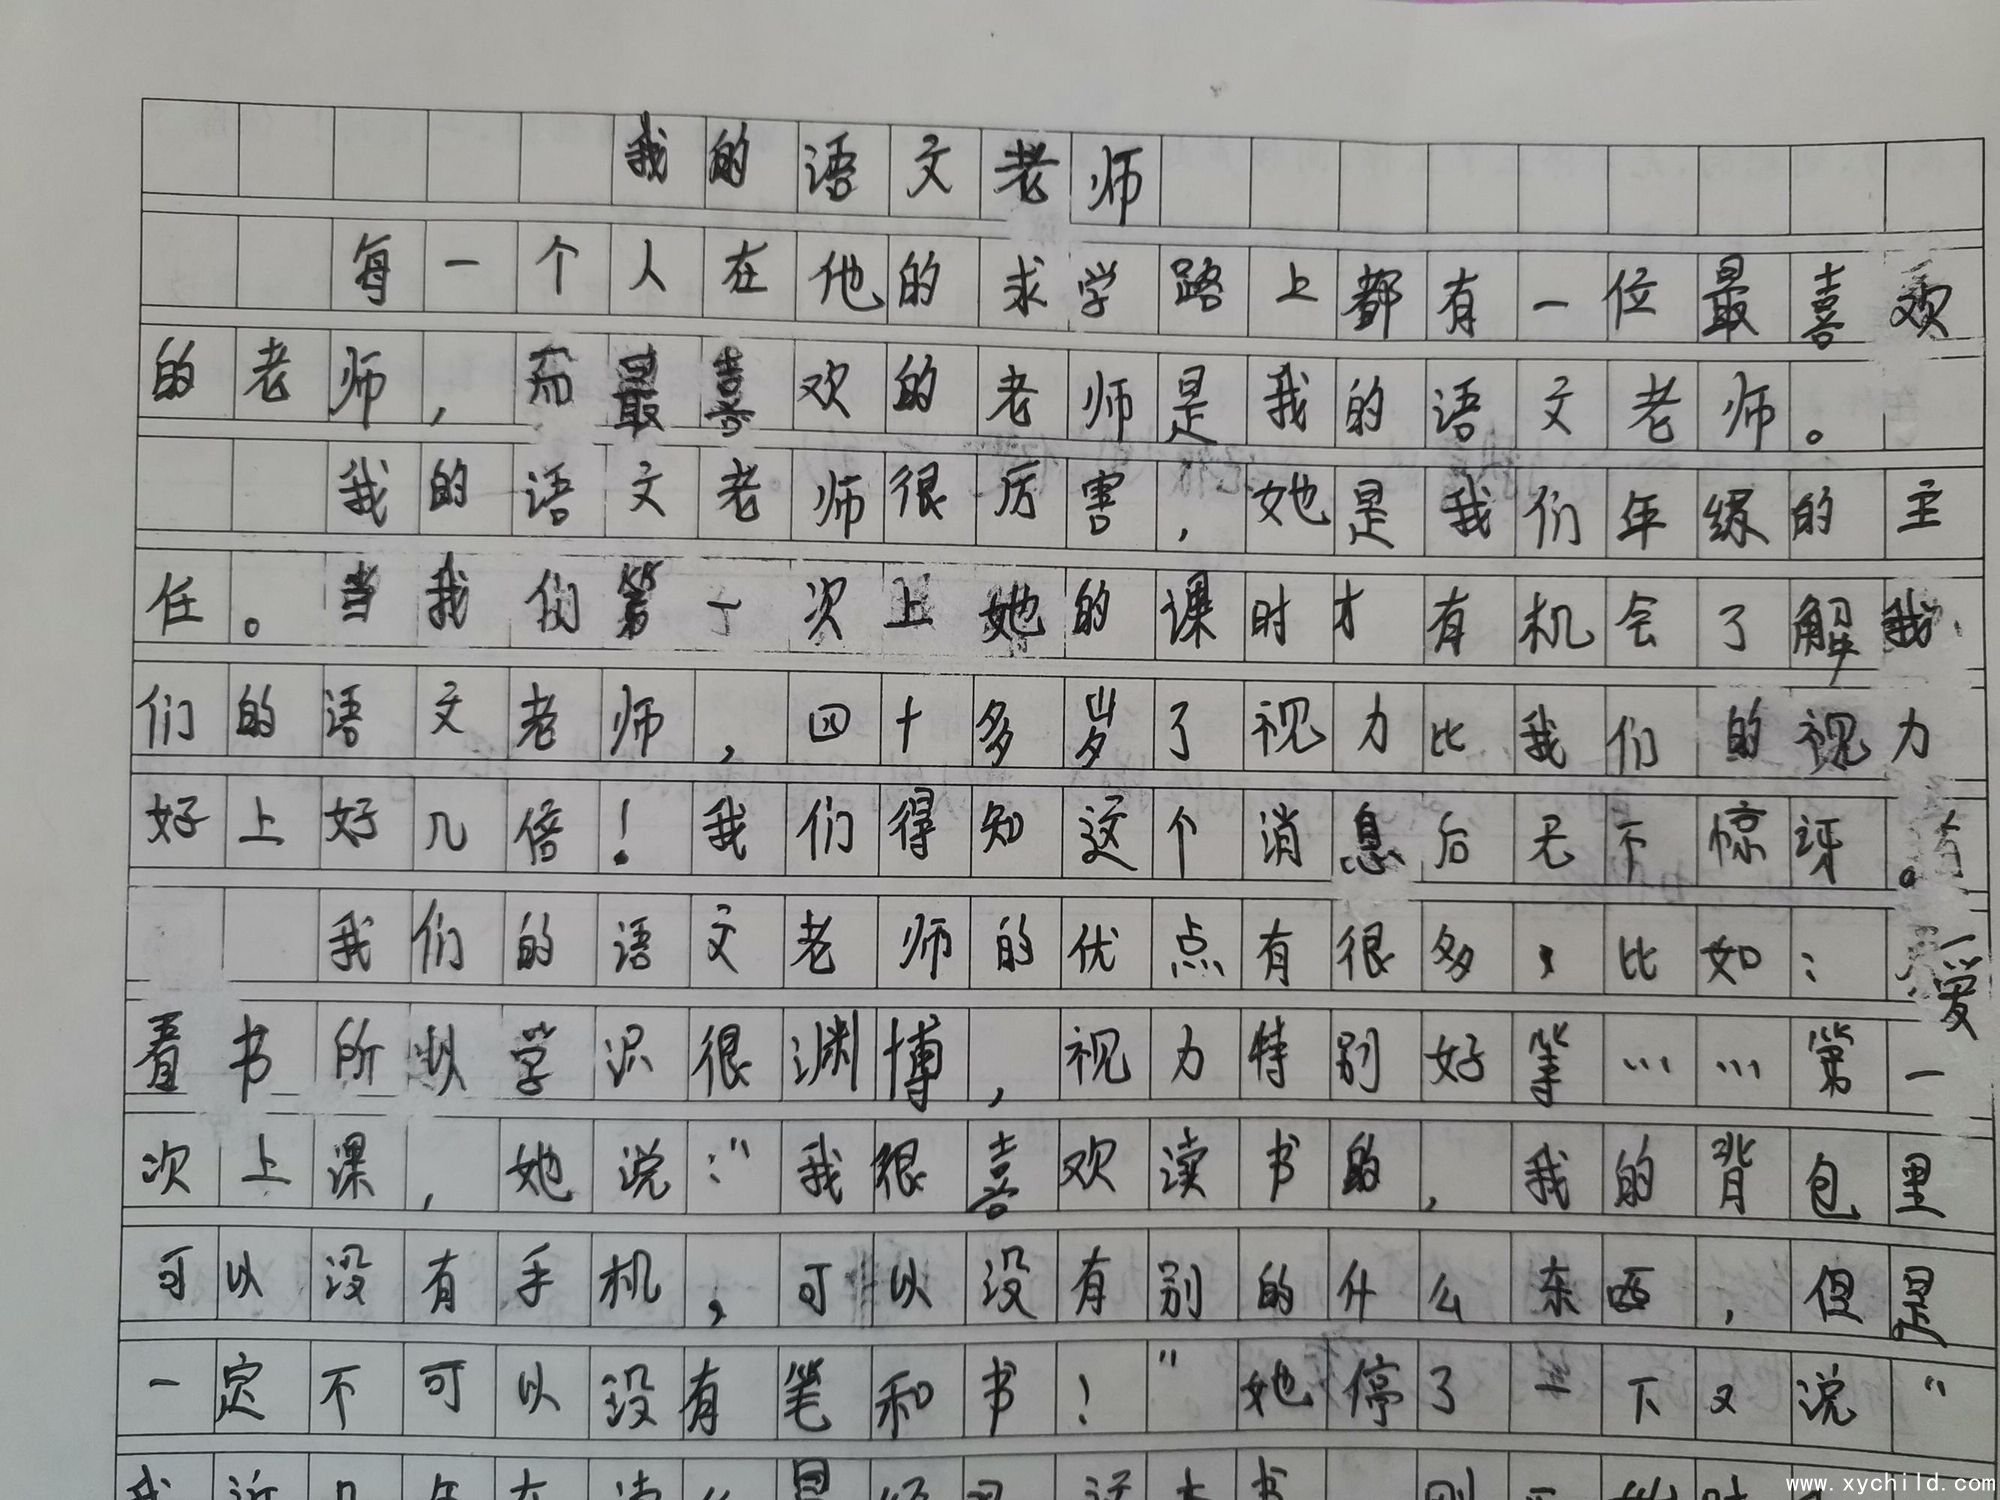 我的语文老师
每一个人在他的求学路上都有一位最喜欢
的老师，而最喜欢的老师是我的语文老师。
我的语文老师很厉害，她是我们年级的主
任。当我们第一次上她的课时才有机会了解我
们的语文老师，四十多岁了视力比我们的视力
好上好几倍！我们得知这个消息后无不惊讶。
我们的语文老师的优点有很多，比如：爱
看书所以学识很渊博，视力特别好等……第一
次上课，她说：“我很喜欢读书的，我的背包里
可以没有手机，可以没有别的什么东西，但是
一定不可以没有笔和书！”她停了一下又说“
www.xychild.com